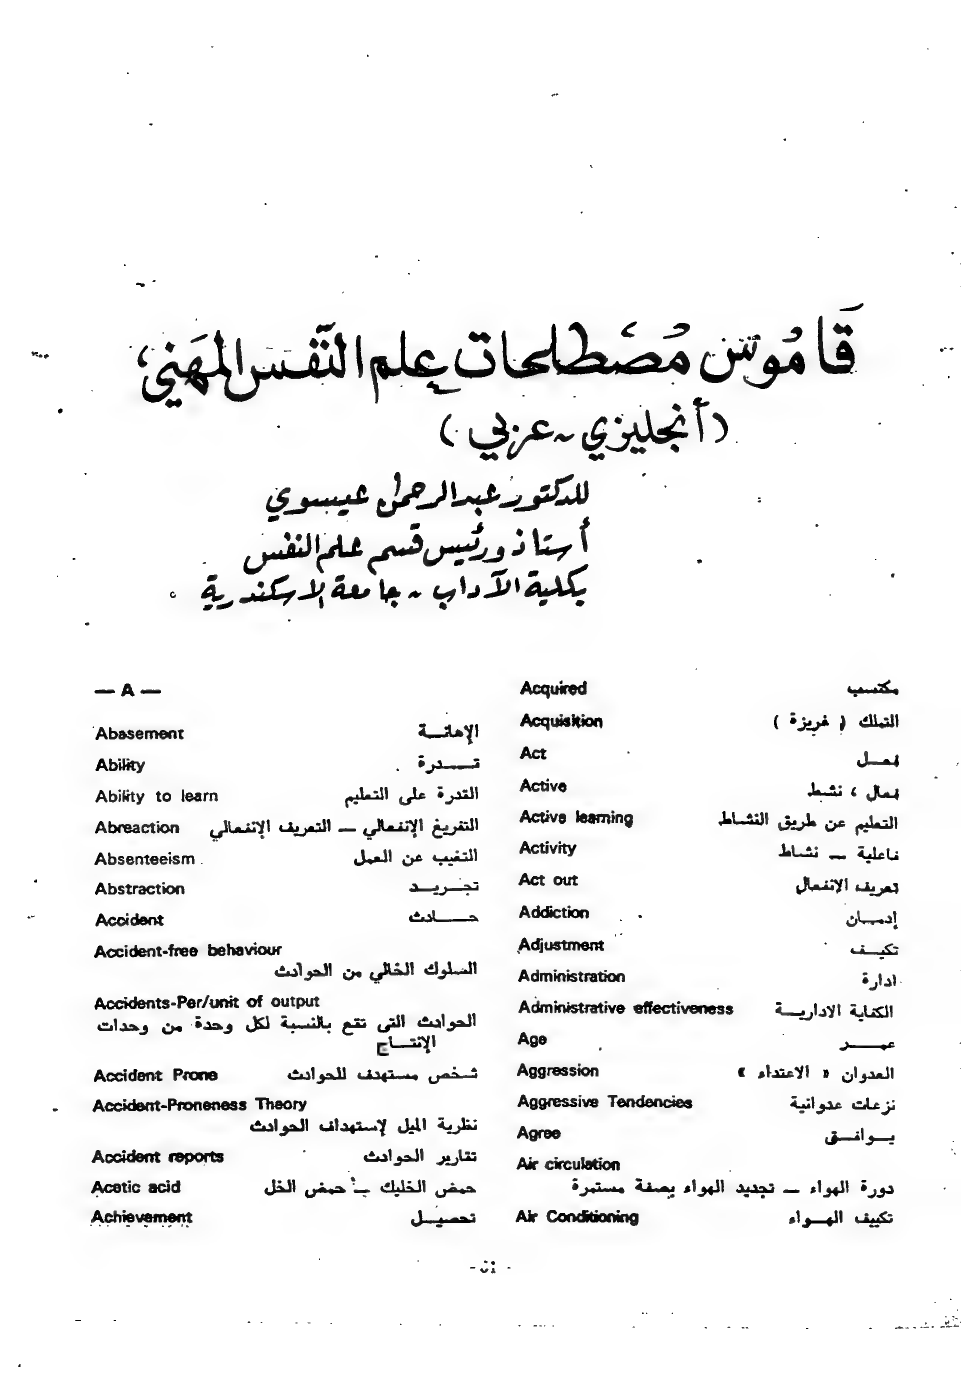 قاموس مصطلحات علم النفس المهني،
(أنجليزي - عربي)
للدكتور عبد الرحمن عيسوي
أستاذ ورئيس قسم علم النفس
بكلية الآداب - جامعة الاسكندرية
— A —
Abasement الإهانـــة
Ability قـــدرة
Ability to learn القدرة على التعليم
Abreaction التفريغ الإنفعالي — التعريف الإنفعالي
Absenteeism التغيب عن العمل
Abstraction تجـــريـــد
Accident حـــادث
Accident-free behaviour
السلوك الخالي من الحوادث
Accidents-Per/unit of output
الحوادث التى تقع بالنسبة لكل وحدة من وحدات
الإنتـــاج
Accident Prone شـخص مستهدف للحوادث
Accident-Proneness Theory
نظرية الميل لإستهداف الحوادث
Accident reports تقارير الحوادث
Acetic acid حمض الخليك — حمض الخل
Achievement تحصيـــل
Acquired مكتسب
Acquisition التملك ( غريزة )
Act فعـــل
Active فعال ، نشط
Active learning التعليم عن طريق النشـاط
Activity فاعلية — نشـاط
Act out تعريف الإنفعال
Addiction إدمـــان
Adjustment تكيـــف
Administration ادارة
Administrative effectiveness الكفاية الاداريـــة
Age عمـــر
Aggression العدوان « الاعتداء »
Aggressive Tendencies نزعات عدوانية
Agree يـــوافـــق
Air circulation
دورة الهواء — تجديد الهواء بصفة مستمرة
Air Conditioning تكييف الهـــواء